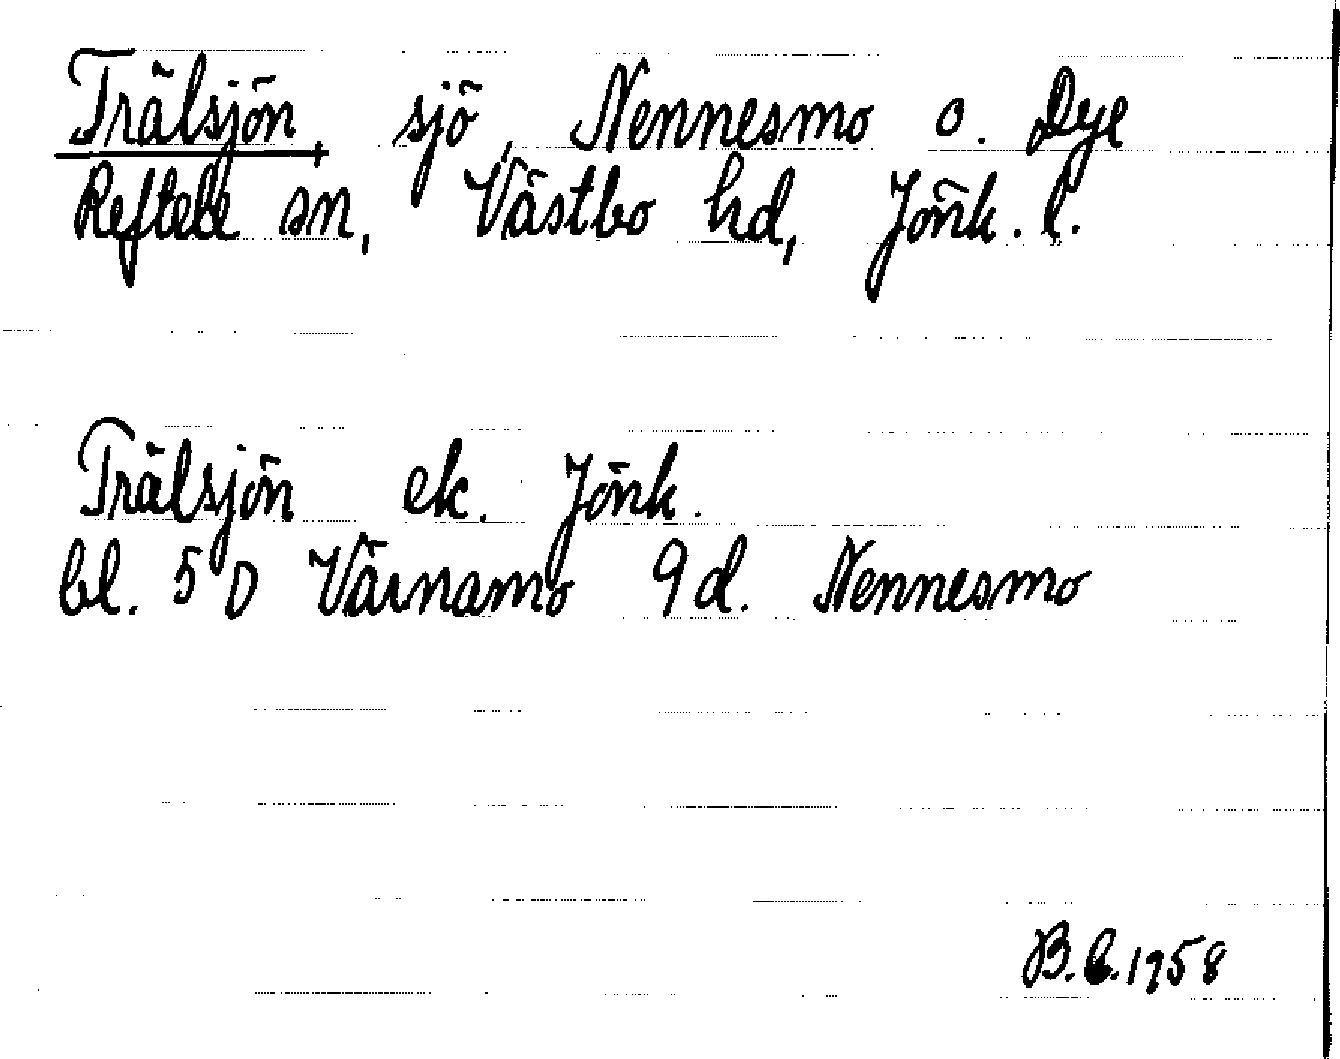 Trälsjön, sjö, Nennesmo o. Dye
Reftele sn, Västbo hd, Jönk. l.
Trälsjön ek. Jönk.
bl. 5 D Värnamo 9d. Nennesmo
B.E.1958